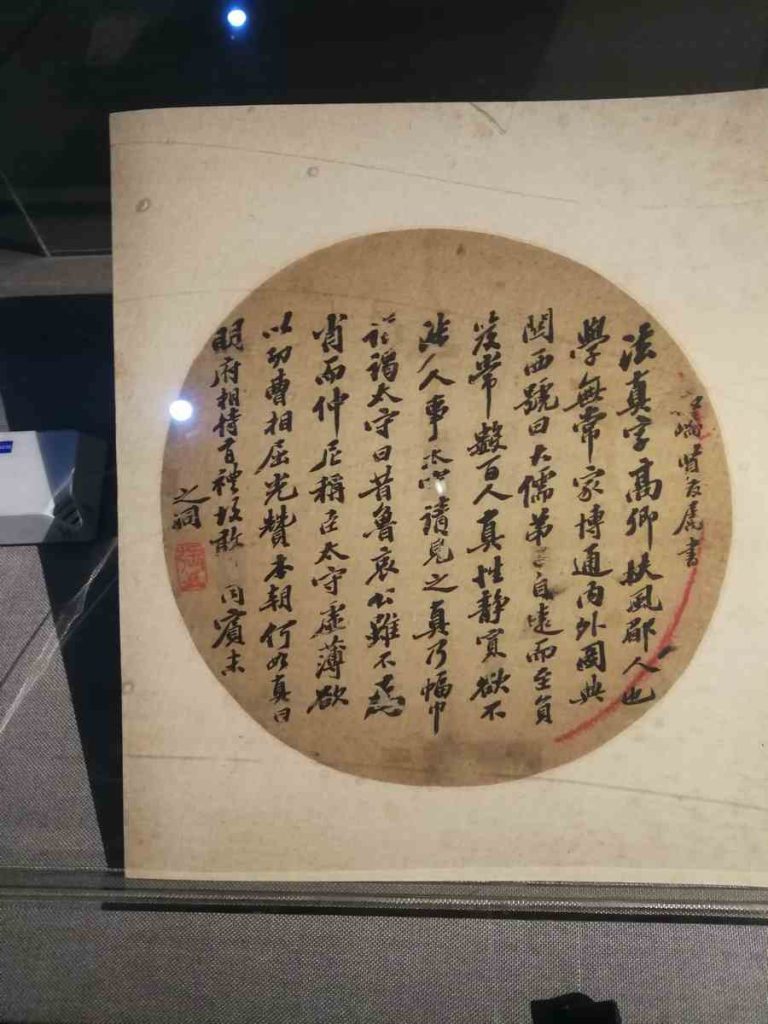 賢友屬書
法真字高卿扶風郿人也
學無常家博通內外圖典
関西號曰大儒弟子自遠而至負
笈常數百人真性靜寡欲不
涉人事太守請見之真乃幅巾
詣謁太守曰昔魯哀公雖不
肖而仲尼稱臣太守虛薄欲
以功曹相屈光贊本朝何如真曰
明府相待有禮故敢同賓末
之洞